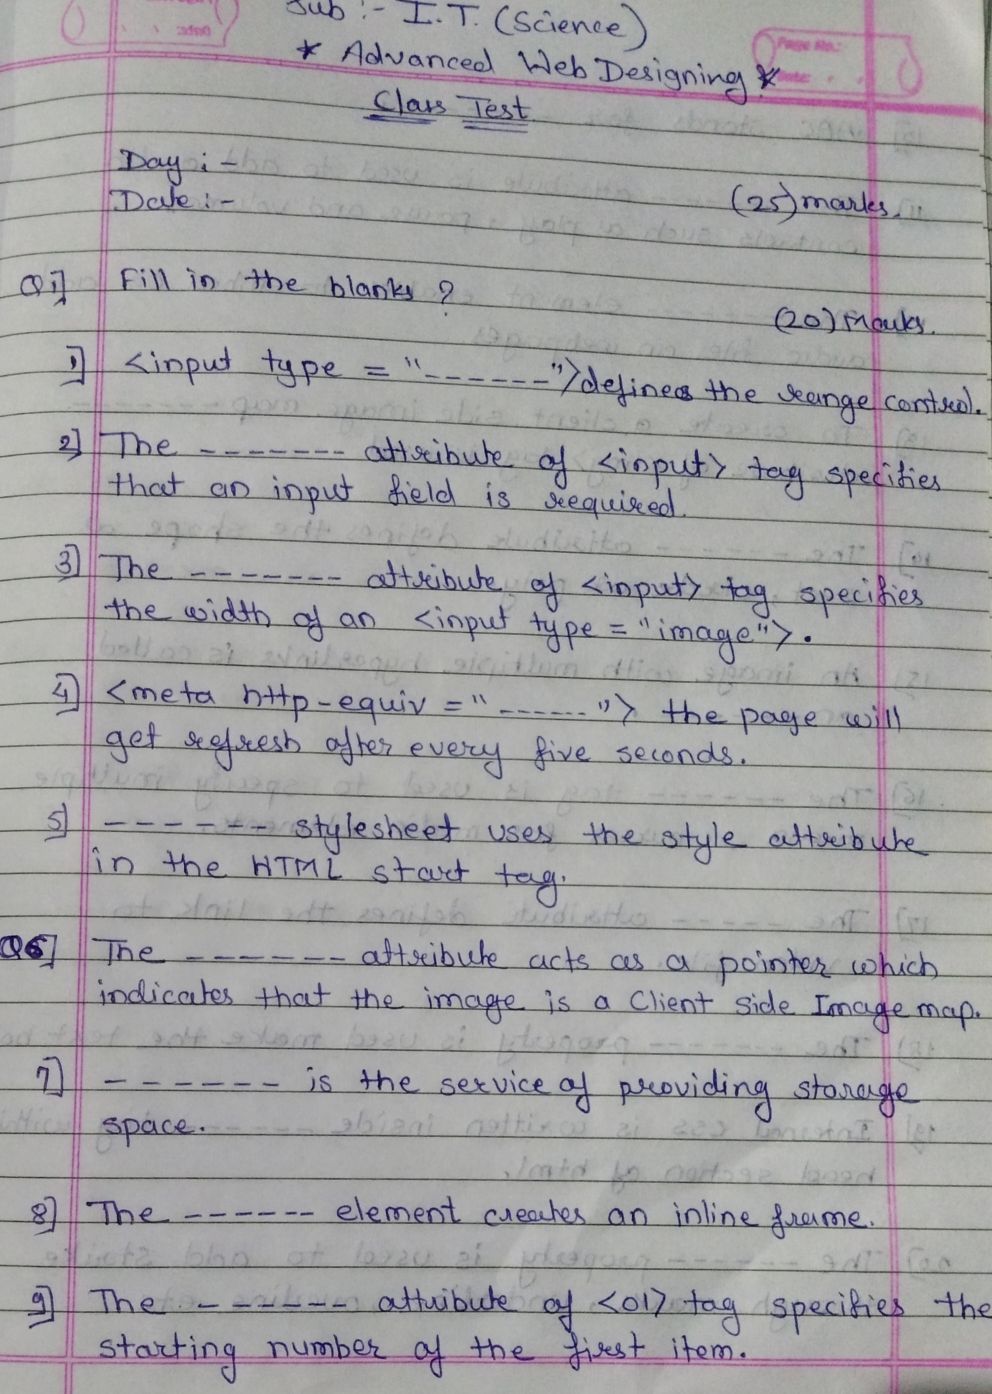 Sub :- I.T. (Science)
* Advanced Web Designing *
Class Test
Day :-
Date :-
(25) marks.
Q1] Fill in the blanks ?
(20) Marks.
1] <input type = "------"> defines the range control.
2] The ------- attribute of <input> tag specifies
that an input field is required.
3] The ------- attribute of <input> tag specifies
the width of an <input type = "image">.
4] <meta http-equiv = "------"> the page will
get refresh after every five seconds.
5] ------- stylesheet uses the style attribute
in the HTML start tag.
Q6] The ------- attribute acts as a pointer which
indicates that the image is a Client Side Image map.
7] ------- is the service of providing storage
space.
8] The ------ element creates an inline frame.
9] The ------- attribute of <ol> tag specifies the
starting number of the first item.